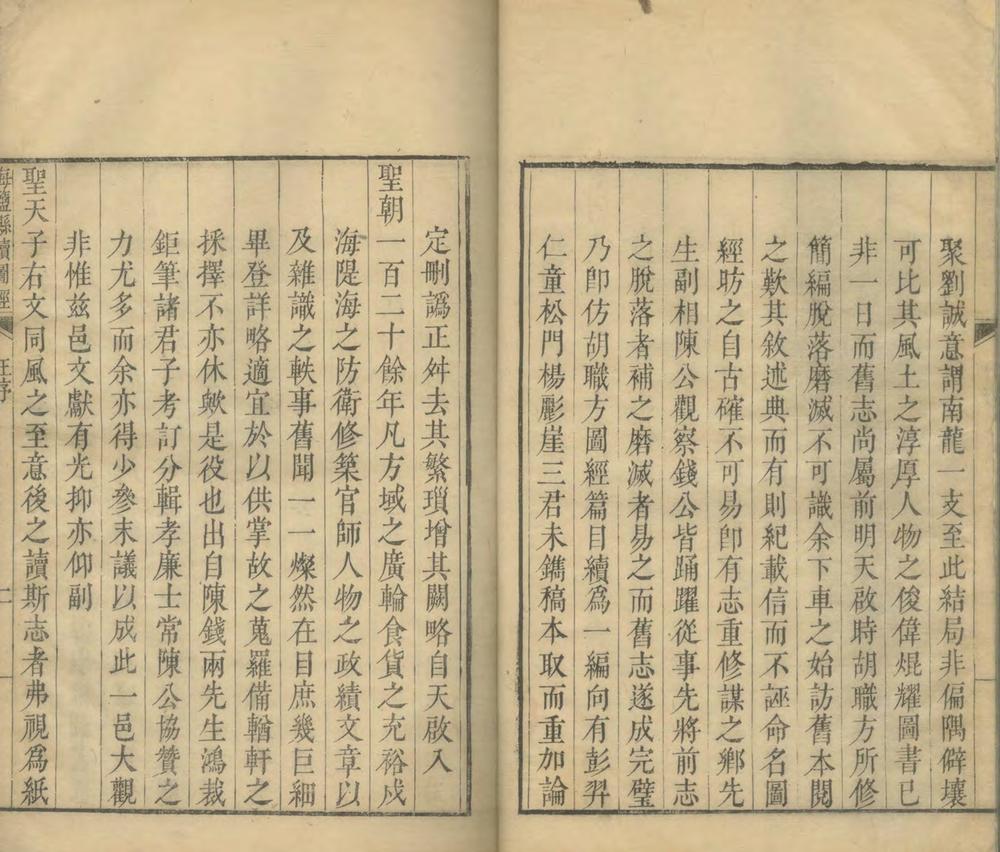 聚劉誠意謂南龍一支至此結局非偏隅僻壤
可比其風土之淳厚人物之俊偉焜耀圖書已
非一日而舊志尚屬前明天啟時胡職方所修
簡編脫落磨滅不可識余下車之始訪舊本閱
之歎其敘述典而有則紀載信而不誣命名圖
經昉之自古確不可易卽有志重修謀之鄉先
生副相陳公觀察錢公皆踊躍從事先將前志
之脫落者補之磨滅者易之而舊志遂成完璧
乃卽仿胡職方圖經篇目續爲一編向有彭羿
仁童松門楊彫崖三君未鐫稿本取而重加論
定刪譌正舛去其繁瑣增其闕略自天啟入
聖朝一百二十餘年凡方域之廣輪食貨之充裕戍
海隄海之防衛修築官師人物之政績文章以
及雜識之軼事舊聞一一燦然在目庶幾巨細
畢登詳略適宜於以供掌故之蒐羅備輶軒之
採擇不亦休歟是役也出自陳錢兩先生鴻裁
鉅筆諸君子考訂分輯孝廉士常陳公協贊之
力尤多而余亦得少參末議以成此一邑大觀
非惟兹邑文獻有光抑亦仰副
聖天子右文同風之至意後之讀斯志者弗視爲紙
海鹽縣續圖經 王序 二